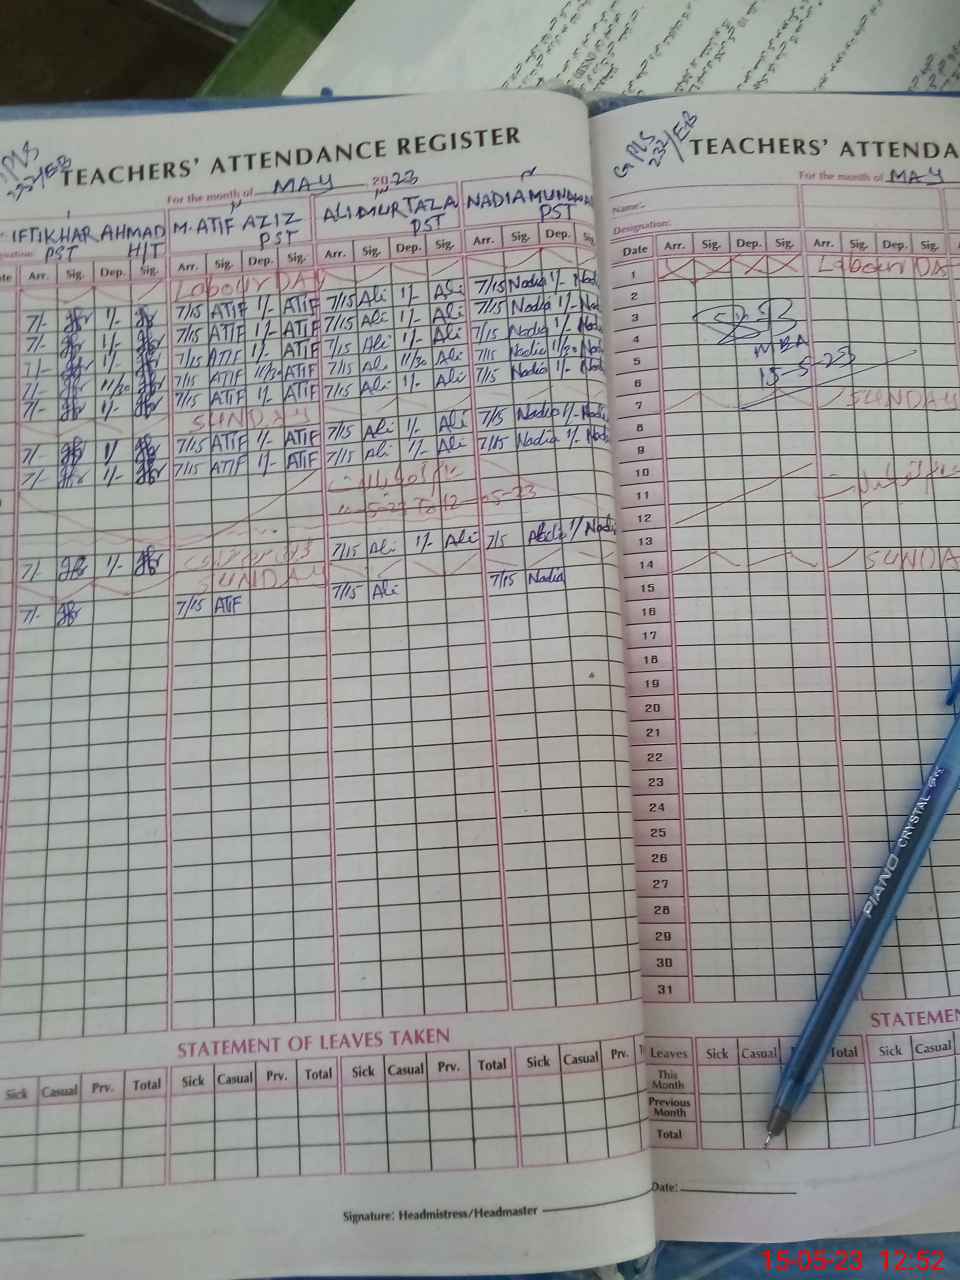 GPLS
232/EB
TEACHERS' ATTENDANCE REGISTER
For the month of MAY 2023
IFTIKHAR AHMAD M. ATIF AZIZ ALI MURTAZA NADIA
PST H/T PST PST PST
Arr. Sig. Dep. Sig. Arr. Sig. Dep. Sig. Arr. Sig. Dep. Sig. Arr. Sig. Dep. Sig.
Labour DAY
7/- 1/- 7/15 ATIF 1/- ATIF 7/15 Ali 1/- Ali 7/15 Nadia 1/- Nadia
7/- 1/- 7/15 ATIF 1/- ATIF 7/15 Ali 1/- Ali 7/15 Nadia 1/- Nadia
7/- 1/- 7/15 ATIF 1/- ATIF 7/15 Ali 1/- Ali 7/15 Nadia 1/- Nadia
7/- 11/30 7/15 ATIF 11/30 ATIF 7/15 Ali 11/30 Ali 7/15 Nadia 11/30 Nadia
7/- 1/- 7/15 ATIF 1/- ATIF 7/15 Ali 1/- Ali 7/15 Nadia 1/-
SUNDAY
7/- 1/ 7/15 ATIF 1/- ATIF 7/15 Ali 1/- Ali 7/15 Nadia 1/- Nadia
7/- 1/- 7/15 ATIF 1/- ATIF 7/15 Ali 1/- Ali 7/15 Nadia 1/- Nadia
To 12-05-23
7/- 1/- 7/15 Ali 1/- Ali 7/5 1/ Nadia
SUNDAY
7/- 7/15 ATIF 7/15 Ali 7/15 Nadia
STATEMENT OF LEAVES TAKEN
Sick Casual Prv. Total Sick Casual Prv. Total Sick Casual Prv. Total Sick Casual Prv.
Signature: Headmistress/Headmaster
GPLS
232/EB
TEACHERS' ATTENDA
For the month of MAY
Name:-
Designation:
Date Arr. Sig. Dep. Sig. Arr. Sig. Dep. Sig.
1 Labour DA
2
3
4
5 15-5-23
6
7 SUNDAY
8
9
10
11
12
13
14 SUNDA
15
16
17
18
19
20
21
22
23
24
25
26
27
28
29
30
31
STATEMEN
Leaves Sick Casual Total Sick Casual
This Month
Previous Month
Total
Date:
PIANO CRYSTAL
15-05-23 12:52